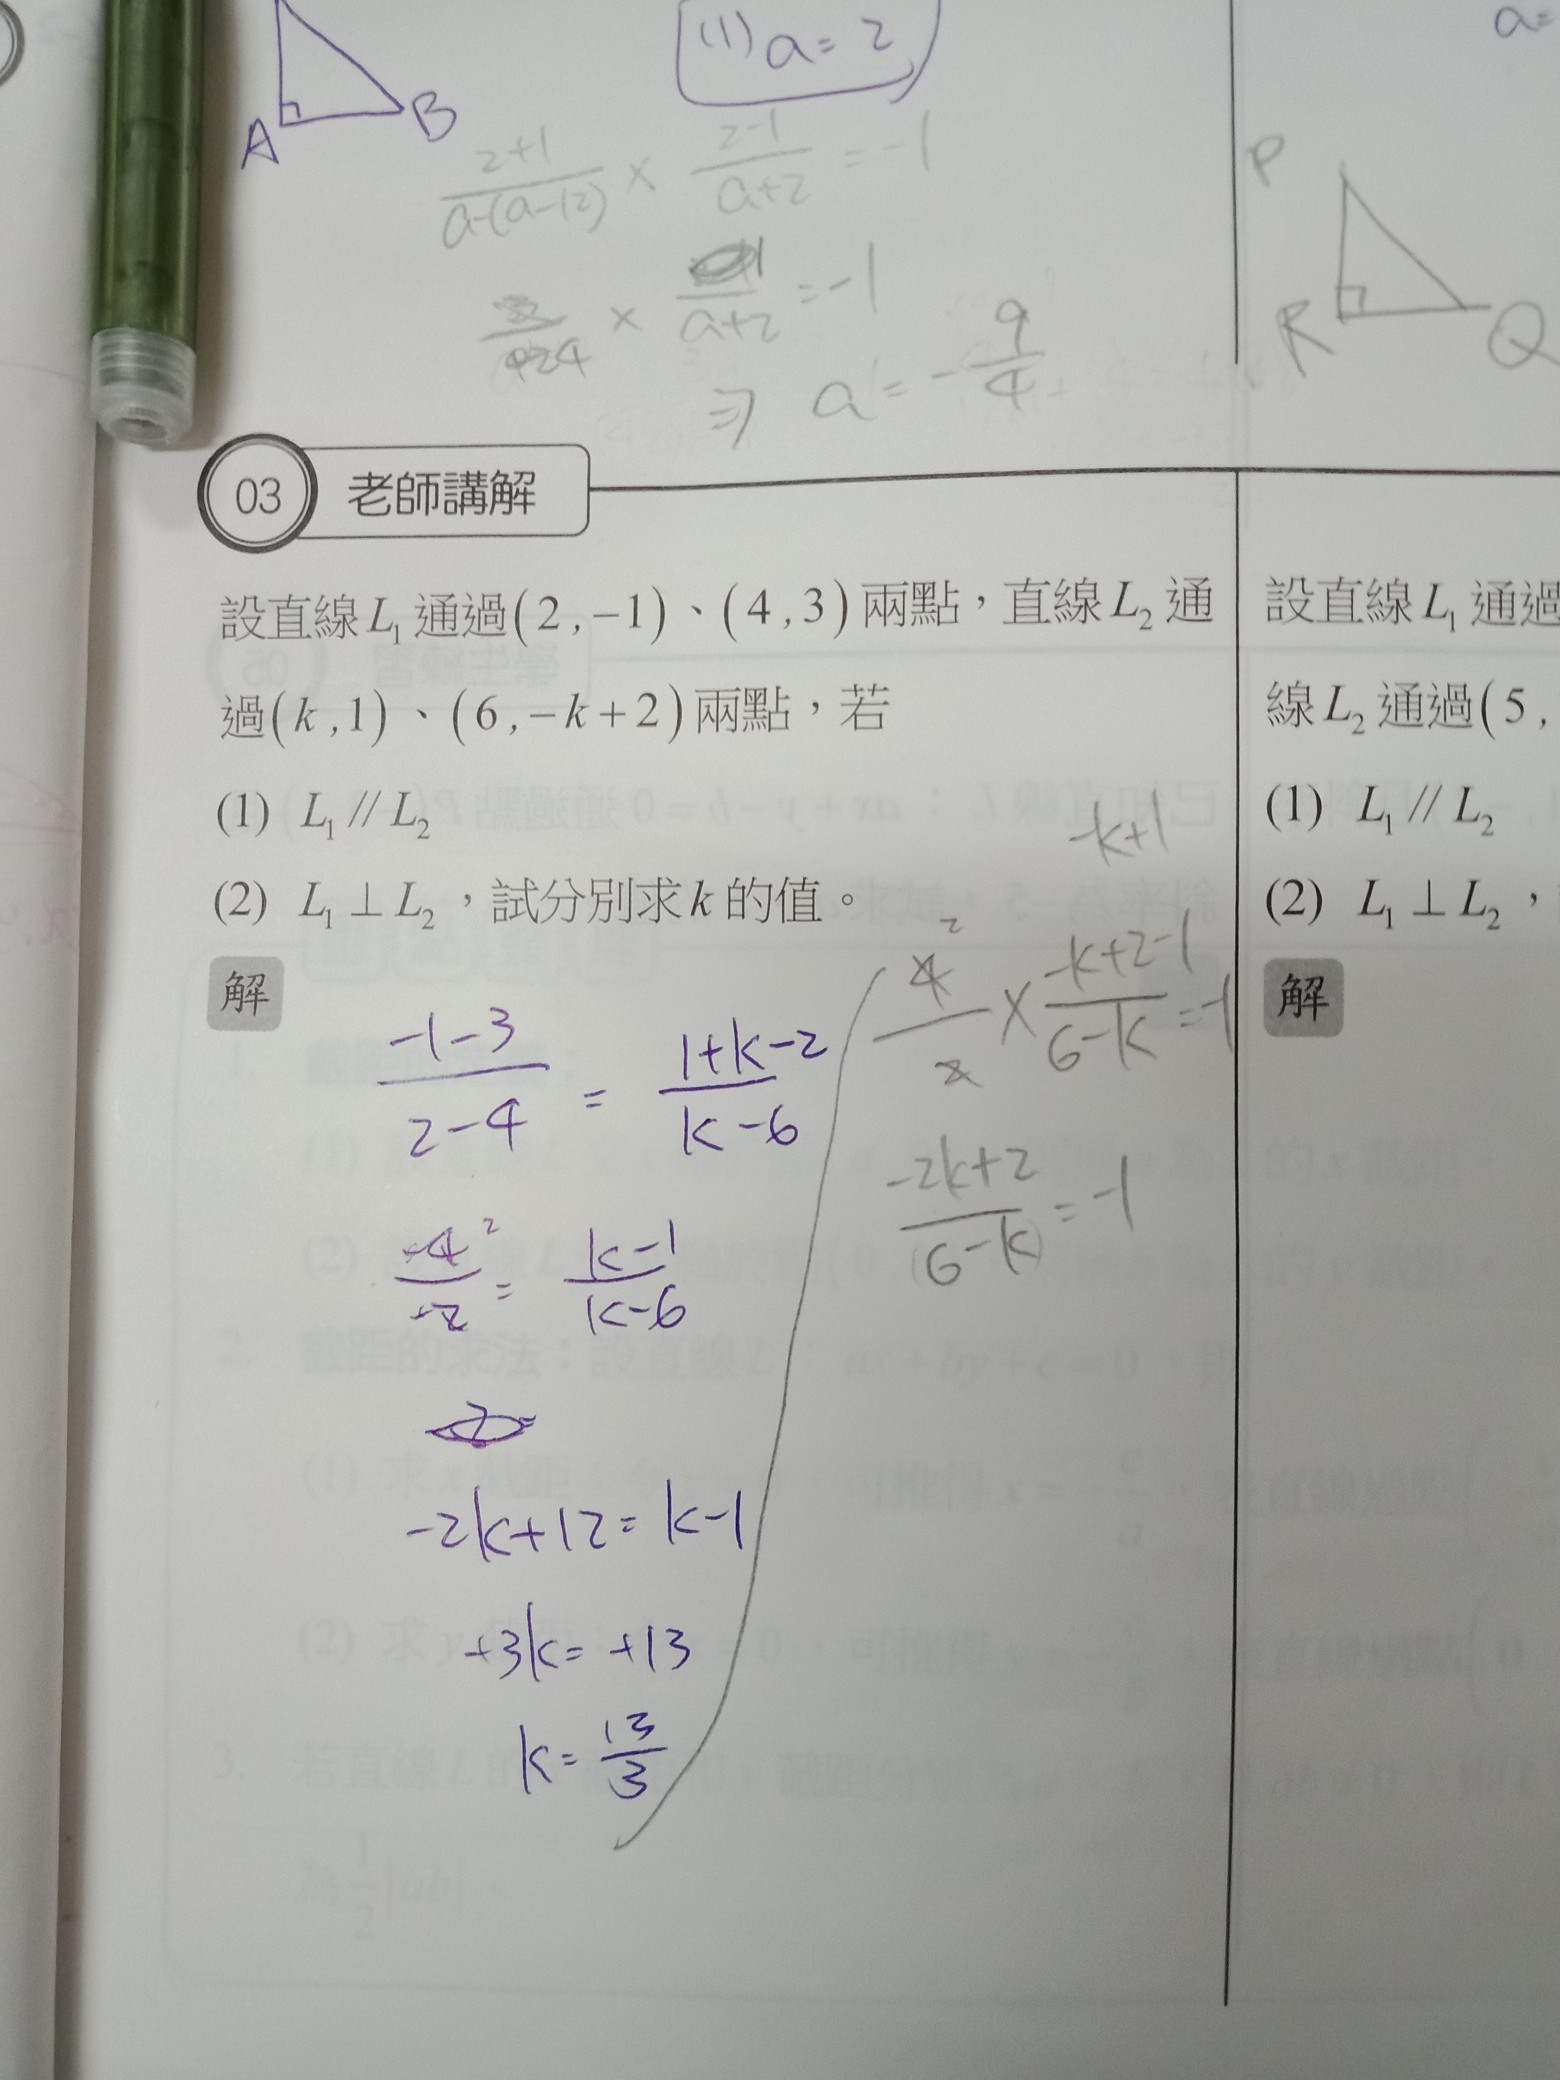 (1) a=2
a=
A
B
\frac{2+1}{a-(a-12)} × \frac{2-1}{a+2} = -1
P
R
Q
× \frac{}{a+2} = -1
⇒ a = -\frac{9}{4}
03 老師講解
設直線L₁通過(2,-1)、(4,3)兩點,直線L₂通
過(k,1)、(6,-k+2)兩點,若
(1) L₁ // L₂
(2) L₁ ⊥ L₂,試分別求k的值。
解
\frac{-1-3}{2-4} = \frac{1+k-2}{k-6}
\frac{-4}{-2} ² = \frac{k-1}{k-6}
-2k+12=k-1
+3k=+13
k=\frac{13}{3}
-k+1
\frac{4}{2} ² × \frac{-k+2-1}{6-k} = -1
\frac{-2k+2}{6-k} = -1
設直線L₁通過
線L₂通過(5,
(1) L₁ // L₂
(2) L₁ ⊥ L₂,
解